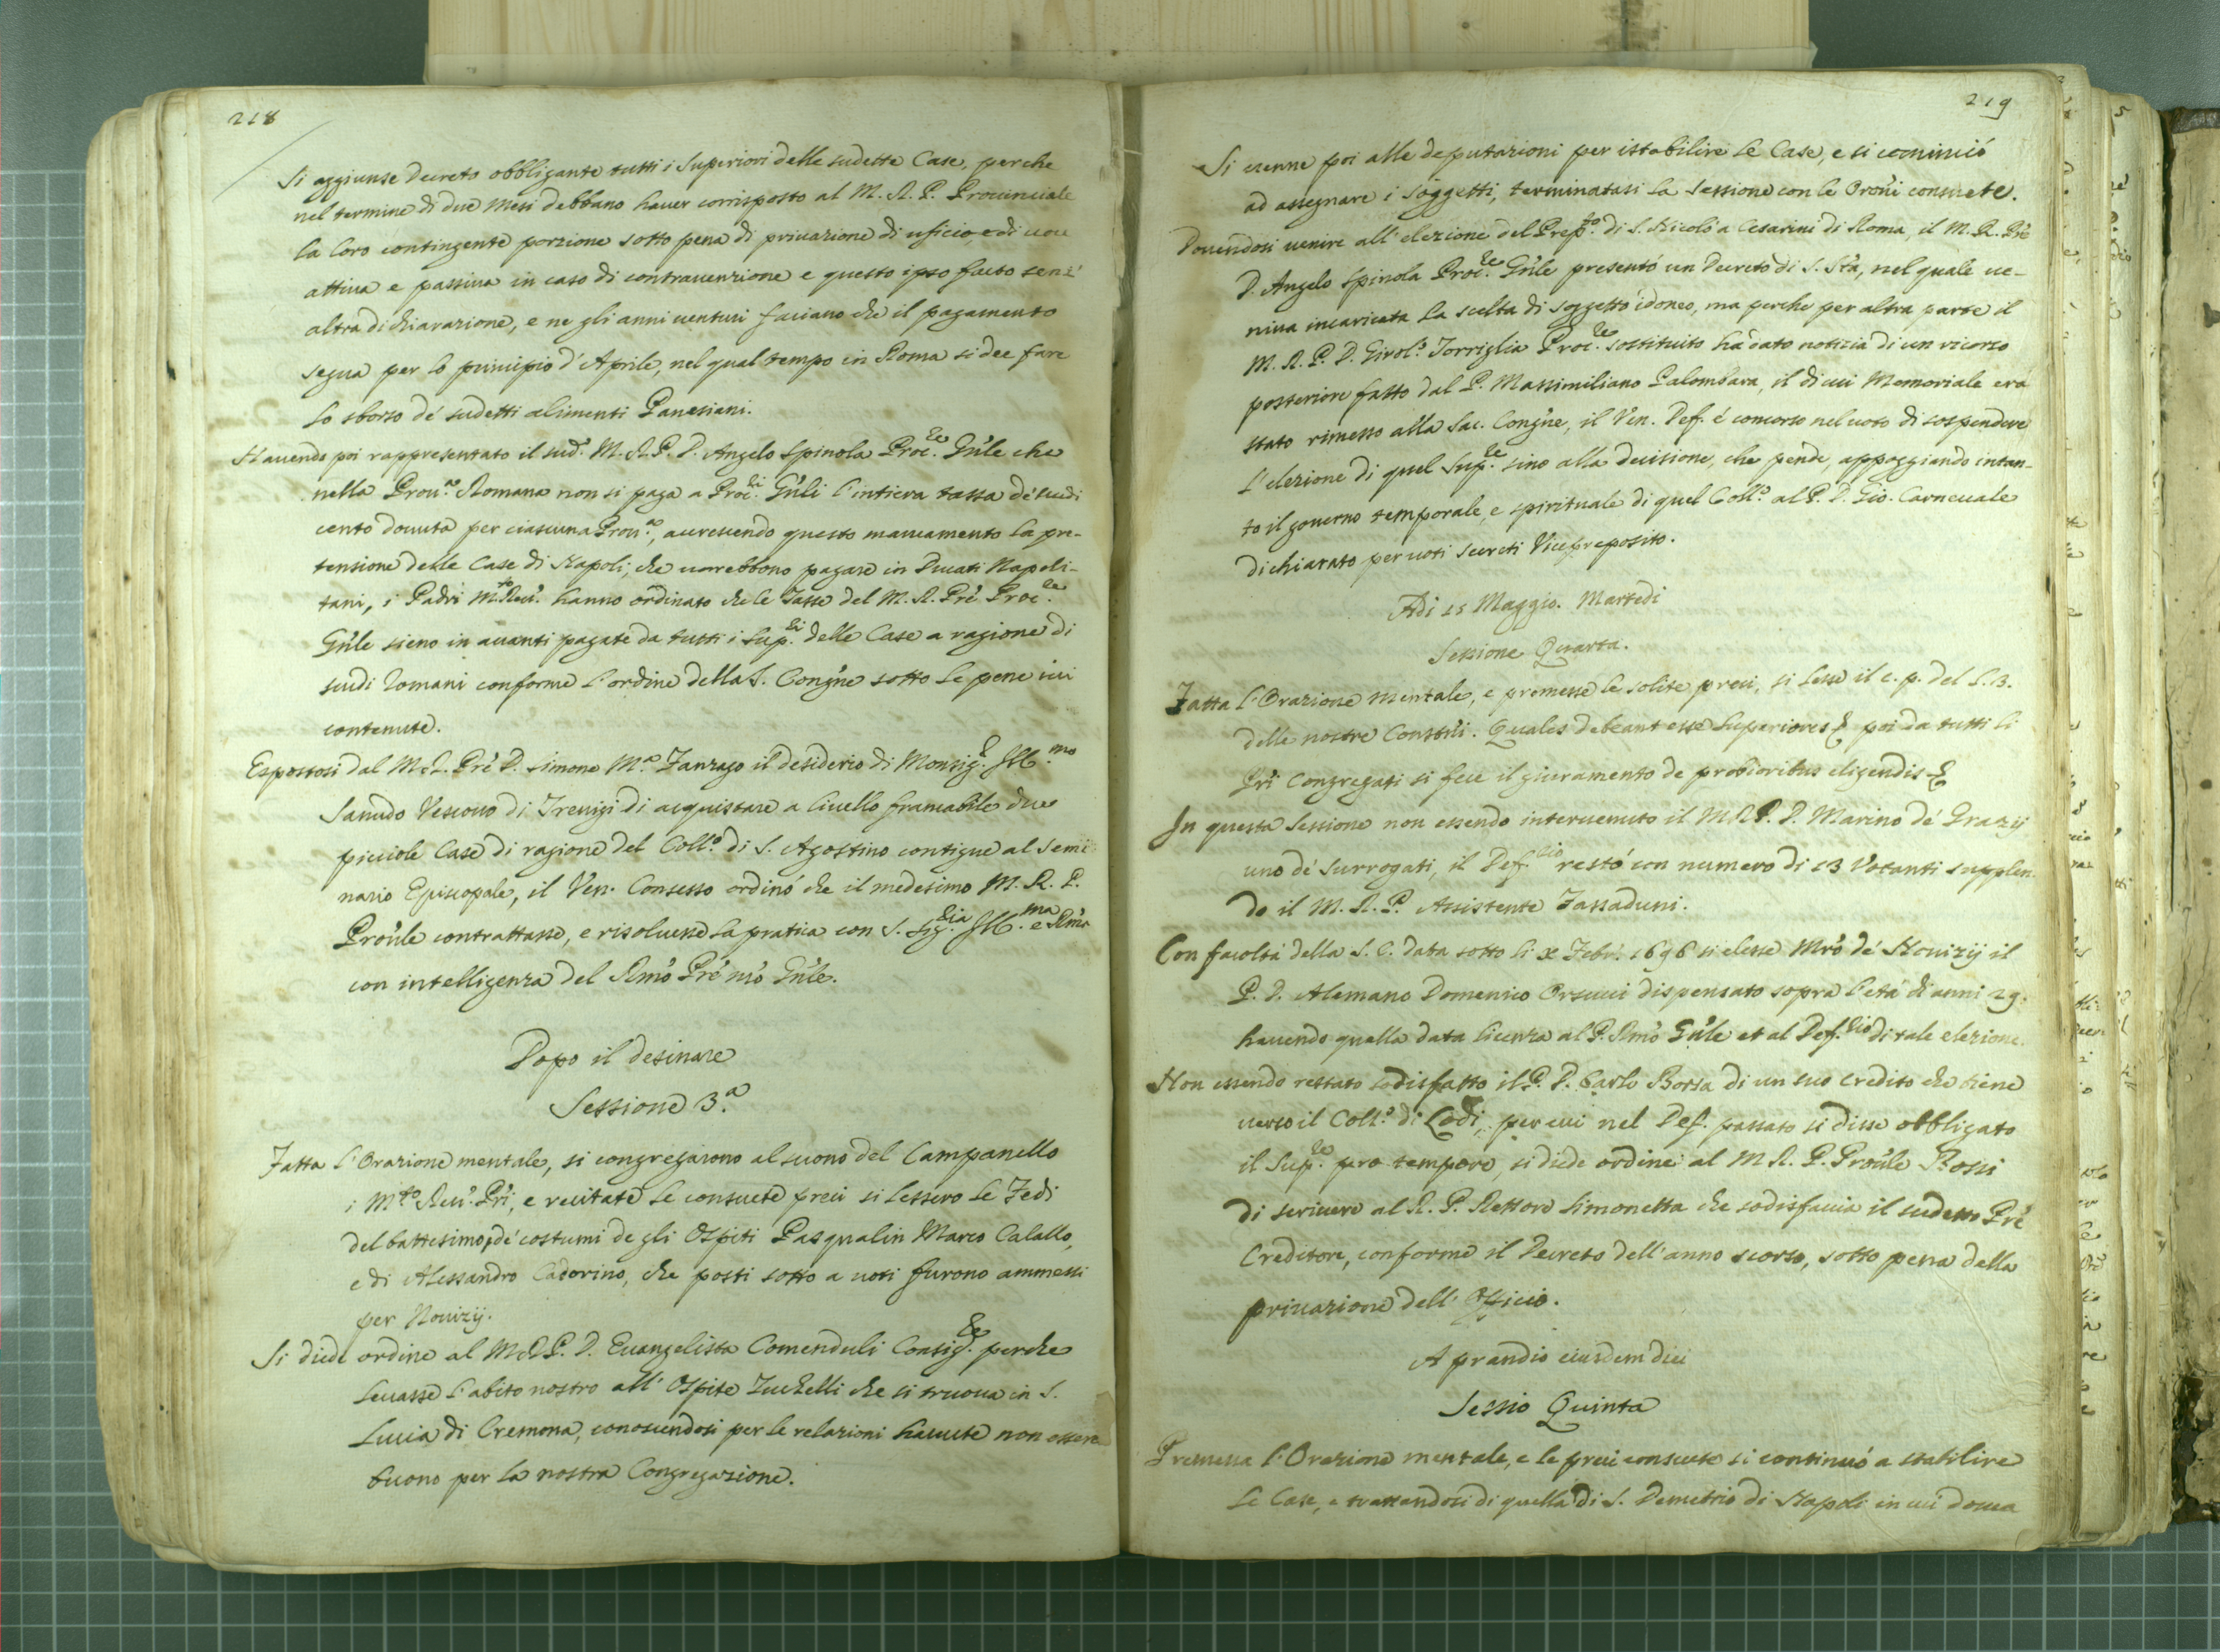 218
Si aggiunse Decreto obbligante tutti i Superiori delle sudette Case, perche
nel termine di due Mesi debbano haver corrisposto al M. R. P. Provinciale
la loro contingente porzione sotto pena di privazione di uficio, e di voce
attiva e passiva in caso di contravenzione e questo ipso facto senz'
altra dichiarazione, e ne gli anni venturi faciano che il pagamento
segua per lo principio d' Aprile, nel qual tempo in Roma si dee fare
lo sborso de' sudetti alimenti Panesiani.
Havendo poi rappresentato il sud.º M. R. P. D. Angelo Spinola Proc.re Gñle che
nella Prov.a Romana non si paga a Proc.ri Gñli l'intiera tassa de' scudi
cento dovuta per ciascuna Prov.a, accrescendo questo mancamento la pre-
tensione delle Case di Napoli, che vorrebbono pagare in Ducati Napoli-
tani, i Padri M.to Rev.i hanno ordinato che le Tasse del M. R. Prê Proc.re
Gñle sieno in avanti pagate da tutti i Sup.ri delle Case a ragione di
scudi Romani conforme l'ordine della S. Congñe sotto le pene ivi
contenute.
Espostosi dal M. R. Prê D. Simone M.a Fanzago il desiderio di Monsig.r Ill.mo
Sanudo Vescovo di Trevigi di acquistare a livello francabile due
picciole Case di ragione del Coll.o di S. Agostino contigue al Semi
nario Episcopale, il Ven. Consesso ordinò che il medesimo M. R. P.
Proñle contrattasse, e risolvesse la pratica con S. Sig.ria Ill.ma e Rm̃a
con intelligenza del Rm̃o Prê nr̃o Gñle.
Dopo il desinare
Sessione 3.a
Fatta l'Orazione mentale, si congregarono al suono del Campanello
i M.to Rev.i Pri, e recitate le consuete preci si lessero le Fedi
del battesimo, e de' costumi de gli Ospiti Pasqualin Marco Calallo,
e di Alessandro Cadorino, che posti sotto a voti furono ammessi
per Novizij.
Si diede ordine al M. R. P. D. Evangelista Comenduli Consig.re perche
levasse l'abito nostro all' Ospite Zuchelli che si truova in S.
Lucia di Cremona, conoscendosi per le relazioni havute non essere
buono per la nostra Congregazione.
219
Si venne poi alle deputazioni per istabilire le Case, e si cominciò
ad assegnare i soggetti, terminatasi la Sessione con le Oroñi consuete.
Dovendosi venire all' elezione del Prep.to di S. Nicolò a Cesarini di Roma, il M. R. Prê
D. Angelo Spinola Proc.re Gñle presentò un Decreto di S. Stà, nel quale ve-
niva incaricata la scelta di soggetto idoneo, ma perche per altra parte il
M. R. P. D. Girol.o Torriglia Proc.re sostituito hà dato notizia di un ricorso
posteriore fatto dal P. Massimiliano Palombara, il di cui Memoriale era
stato rimesso alla Sac. Congñe, il Ven. Def. è concorso nel voto di sospendere
l'elezione di quel Sup.re sino alla decisione, che pende, appoggiando intan-
to il governo temporale, e spirituale di quel Coll.o al P. D. Gio. Carnevale
dichiarato per voti secreti Vicepreposito.
Adi 15 Maggio. Martedi
Sessione Quarta.
Fatta l'Orazione mentale, e premesse le solite preci, si lesse il c. p. del l. 3.
delle nostre Constõni. Quales debeant esse Superiores & poi da tutti li
Pri Congregati si fece il giuramento de probioribus eligendis &
In questa Sessione non essendo intervenuto il M. R. P. D. Marino de' Grazij
uno de' Surrogati, il Def.rio restò con numero di 13 Votanti supplen
do il M. R. P. Assistente Fassaduni.
Con facoltà della S. C. data sotto li x Febr. 1696 si elesse Mr̃o de' Novizij il
P. D. Alemano Domenico Orsucci dispensato sopra l'età di anni 29.
havendo quella data licenza al P. Rm̃o Gñle et al Def.rio di tale elezione.
Non essendo restato sodisfatto il P. D. Carlo Borsa di un suo credito che tiene
verso il Coll.o di Lodi, per cui nel Def. passato si disse obbligato
il Sup.re pro tempore, si diede ordine al M. R. P. Proñle Rossi
di scrivere al R. P. Rettore Simonetta che sodisfaccia il sudetto Prê
Creditore, conforme il Decreto dell' anno scorso, sotto pena della
privazione dell' Officio.
A prandio eiusdem diei
Sessio Quinta
Premessa l'Orazione mentale, e le preci consuete si continuò a stabilire
le Case, e trattandosi di quella di S. Demetrio di Napoli in cui dovea